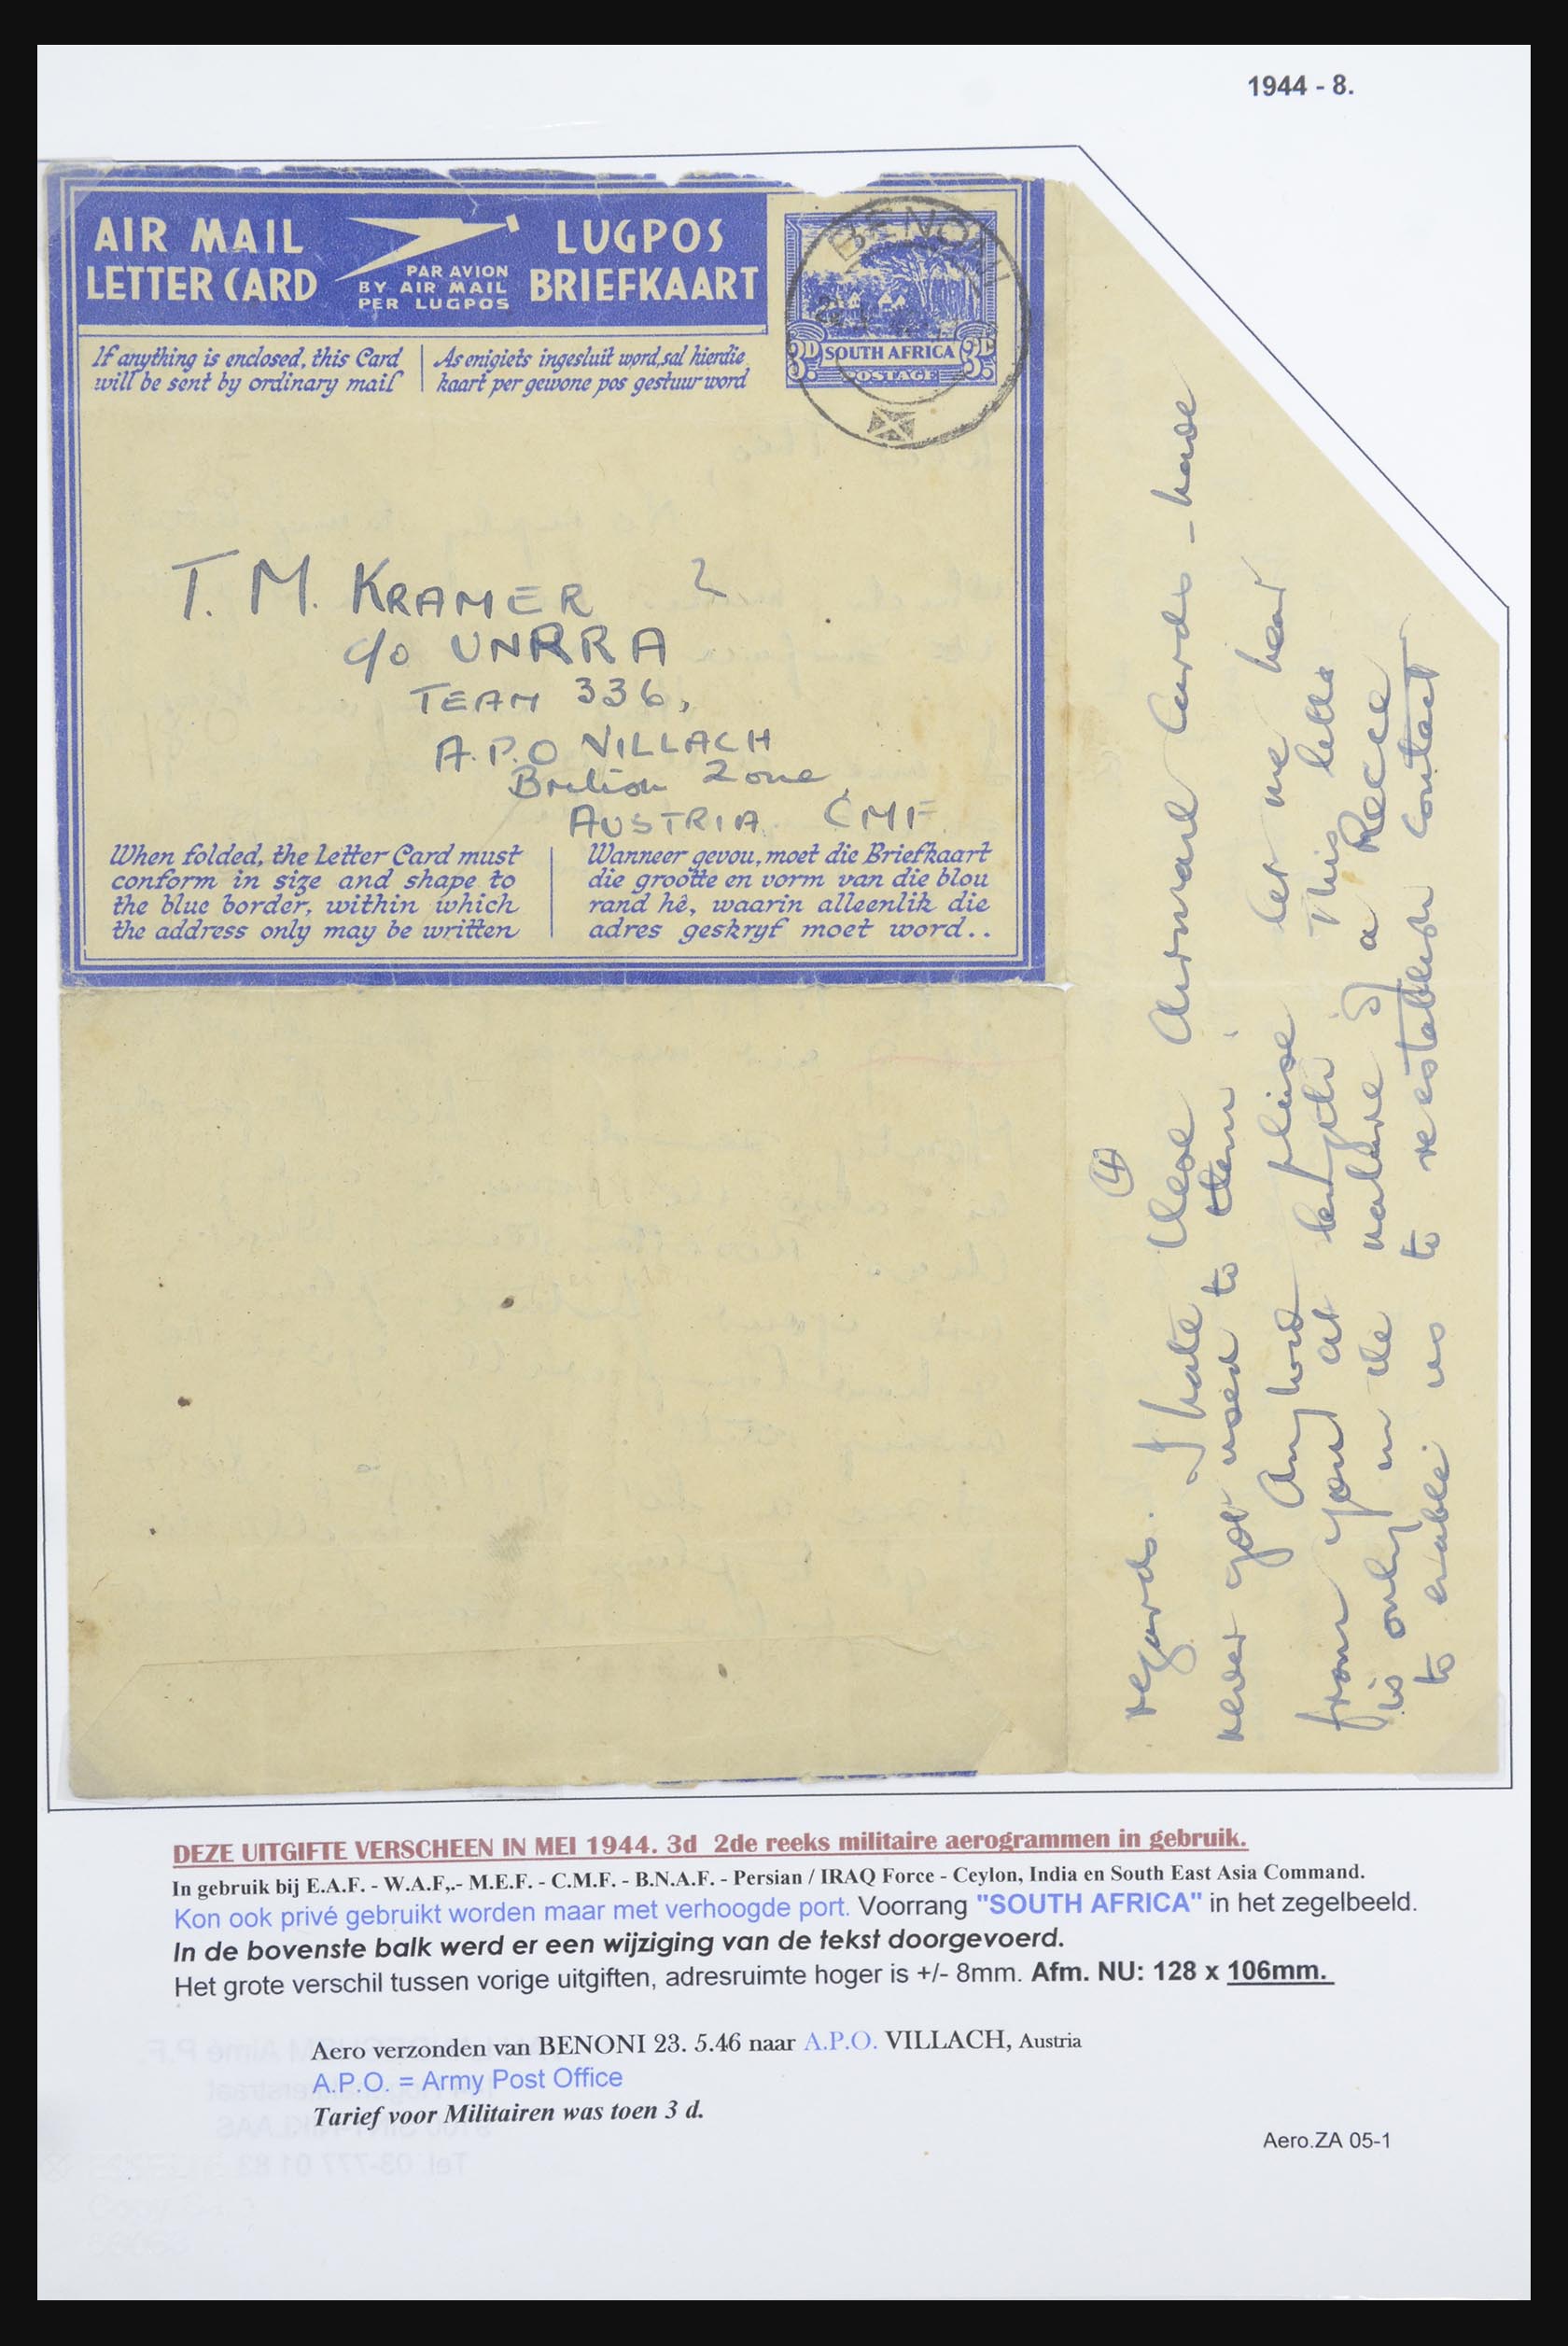 1944 - 8.
AIR MAIL
LETTER CARD
PAR AVION
BY AIR MAIL
PER LUGPOS
LUGPOS
BRIEFKAART
BENONI
3D SOUTH AFRICA 3D
POSTAGE
If anything is enclosed, this Card
will be sent by ordinary mail
As enigiets ingesluit word, sal hierdie
kaart per gewone pos gestuur word
T. M. KRAMER
c/o UNRRA
TEAM 336,
A.P.O VILLACH
British Zone
AUSTRIA. CMF
When folded, the Letter Card must
conform in size and shape to
the blue border, within which
the address only may be written
Wanneer gevou, moet die Briefkaart
die grootte en vorm van die blou
rand hê, waarin alleenlik die
adres geskryf moet word..
4
regards. I hate these Airmail Cards - have
never got used to them.
Anyhow please let me hear
from you at length. This letter
is only in the nature of a Recce
to enable us to reestablish contact
DEZE UITGIFTE VERSCHEEN IN MEI 1944. 3d 2de reeks militaire aerogrammen in gebruik.
In gebruik bij E.A.F. - W.A.F,.- M.E.F. - C.M.F. - B.N.A.F. - Persian / IRAQ Force - Ceylon, India en South East Asia Command.
Kon ook privé gebruikt worden maar met verhoogde port. Voorrang "SOUTH AFRICA" in het zegelbeeld.
In de bovenste balk werd er een wijziging van de tekst doorgevoerd.
Het grote verschil tussen vorige uitgiften, adresruimte hoger is +/- 8mm. Afm. NU: 128 x 106mm.
Aero verzonden van BENONI 23. 5.46 naar A.P.O. VILLACH, Austria
A.P.O. = Army Post Office
Tarief voor Militairen was toen 3 d.
Aero.ZA 05-1